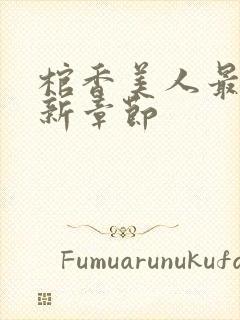 棺香美人最
新章节
Fumuarunukufa